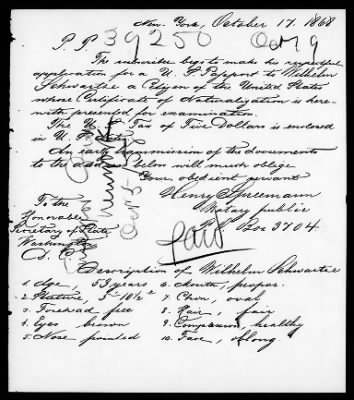 New-York, October 17. 1868
P. P. 39250 Oct 19
The subscriber begs to make his respectful
application for a U. S. Passport to Wilhelm
Schwartie a Citizen of the United States
whose Certificate of Naturalization is here-
with presented for examination.
The U. S. Tax of Five Dollars is enclosed
in U. S.
An early transmission of the documents
to the below will much oblige
Your obedient servant
Henry Spreemann
Notary public
P. O. Box 3704
To the
Honorable
Secretary of State
Washington
D. C.
Paid
Description of Wilhelm Schwartie
1. Age, 53 years 6. Mouth, propor.
2. Stature, 5' 10½" 7. Chin, oval
3. Forehead free 8. Hair, fair
4. Eyes brown 9. Complexion, healthy
5. Nose pointed 10. Face, oblong